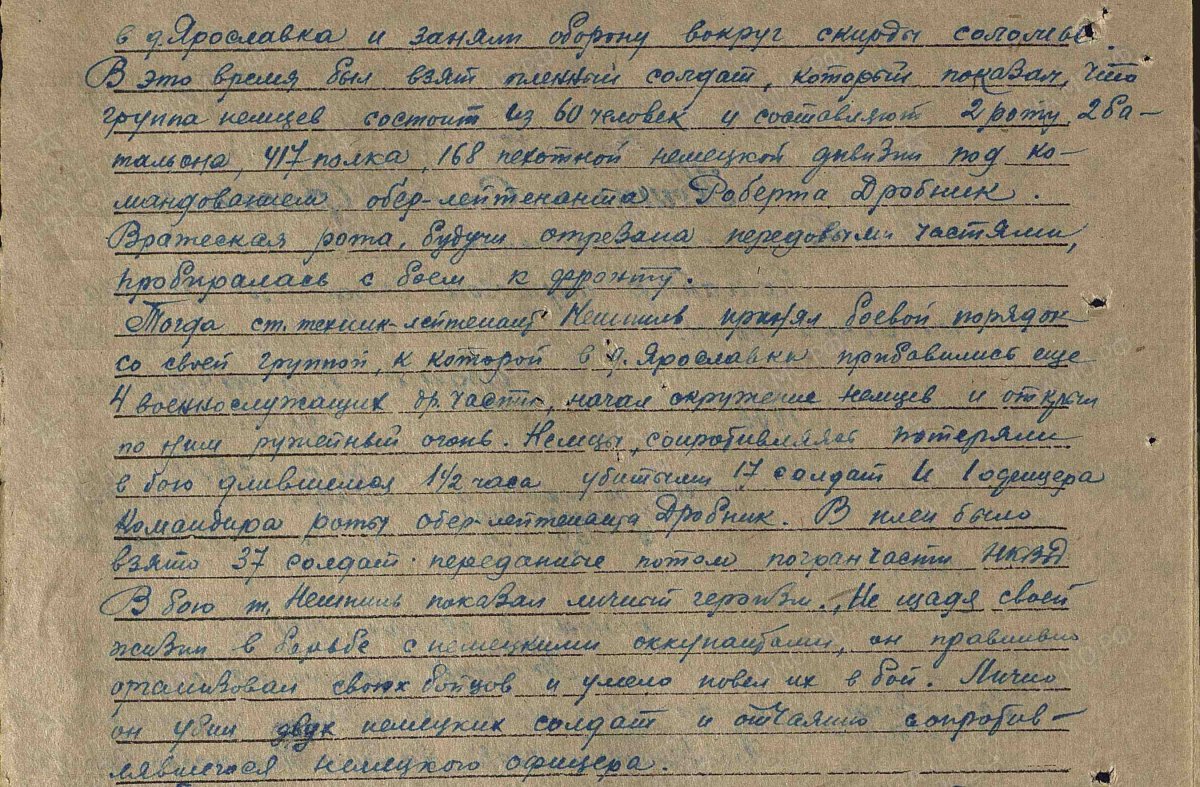 в д. Ярославка и заняли оборону вокруг скирды соломы.
В это время был взят пленный солдат, который показал, что
группа немцев состоит из 60 человек и составляют 2 роту, 2 ба-
тальона, 417 полка, 168 пехотной немецкой дивизии под ко-
мандованием обер-лейтенанта Роберта Дробник.
Вражеская рота, будучи отрезана передовыми частями,
пробиралась с боем к фронту.
Тогда ст. техник-лейтенант Нешпиль принял боевой порядок
со своей группой, к которой в д. Ярославка прибавились еще
4 военнослужащих др. части, начал окружение немцев и открыл
по ним ружейный огонь. Немцы, сопротивляясь потеряли
в бою длившемся 1 1/2 часа убитыми 17 солдат и 1 офицера
командира роты обер-лейтенанта Дробник. В плен было
взято 37 солдат переданные потом погранчасти НКВД
В бою т. Нешпиль показал личный героизм. Не щадя своей
жизни в борьбе с немецкими оккупантами, он правильно
организовал своих бойцов и умело повел их в бой. Лично
он убил двух немецких солдат и отчаянно сопротив-
лявшегося немецкого офицера.